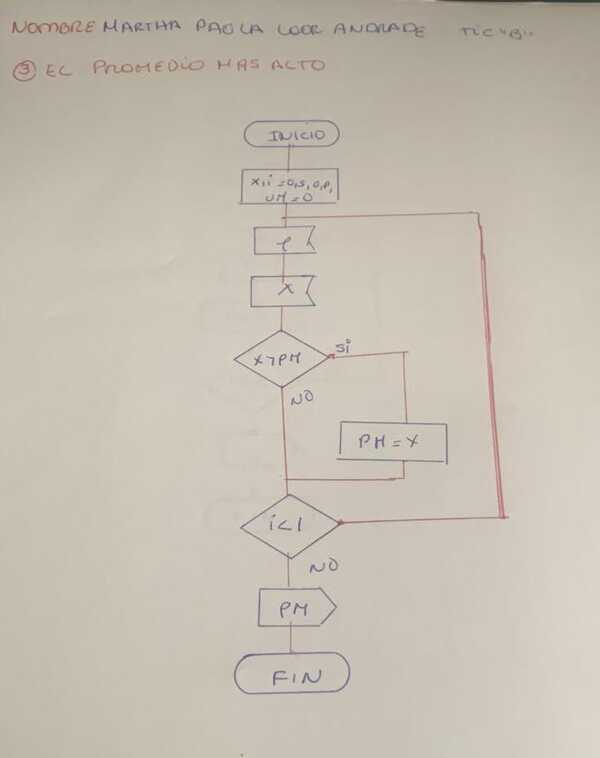 NOMBRE MARTHA PAOLA LOOR ANDRADE TIC "B"
③ EL PROMEDIO MAS ALTO
INICIO
X,i = 0,S,0,P,
UM = 0
P
X
X>PM
Si
NO
PM = X
i<1
NO
PM
FIN